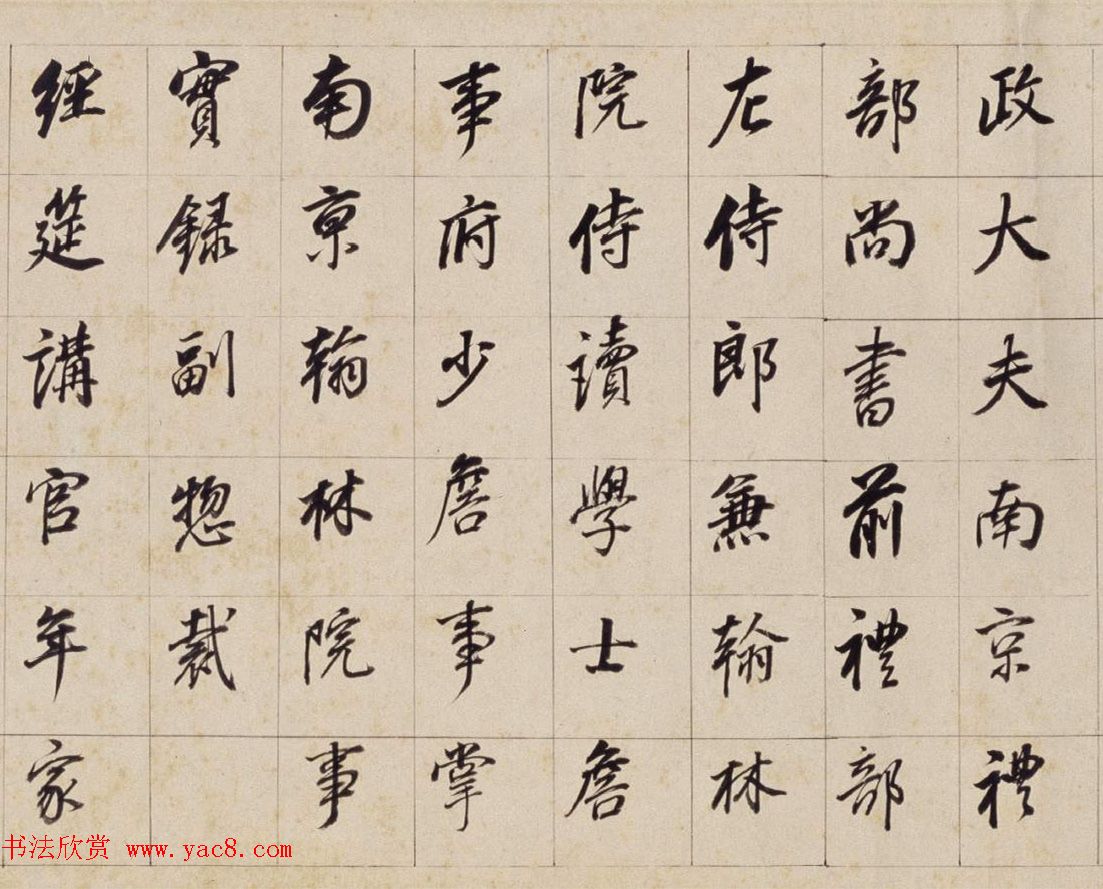 政大夫南京禮
部尚書前禮部
左侍郎兼翰林
院侍讀學士詹
事府少詹事掌
南京翰林院事
實録副惣裁
經筵講官年家
书法欣赏 www.yac8.com